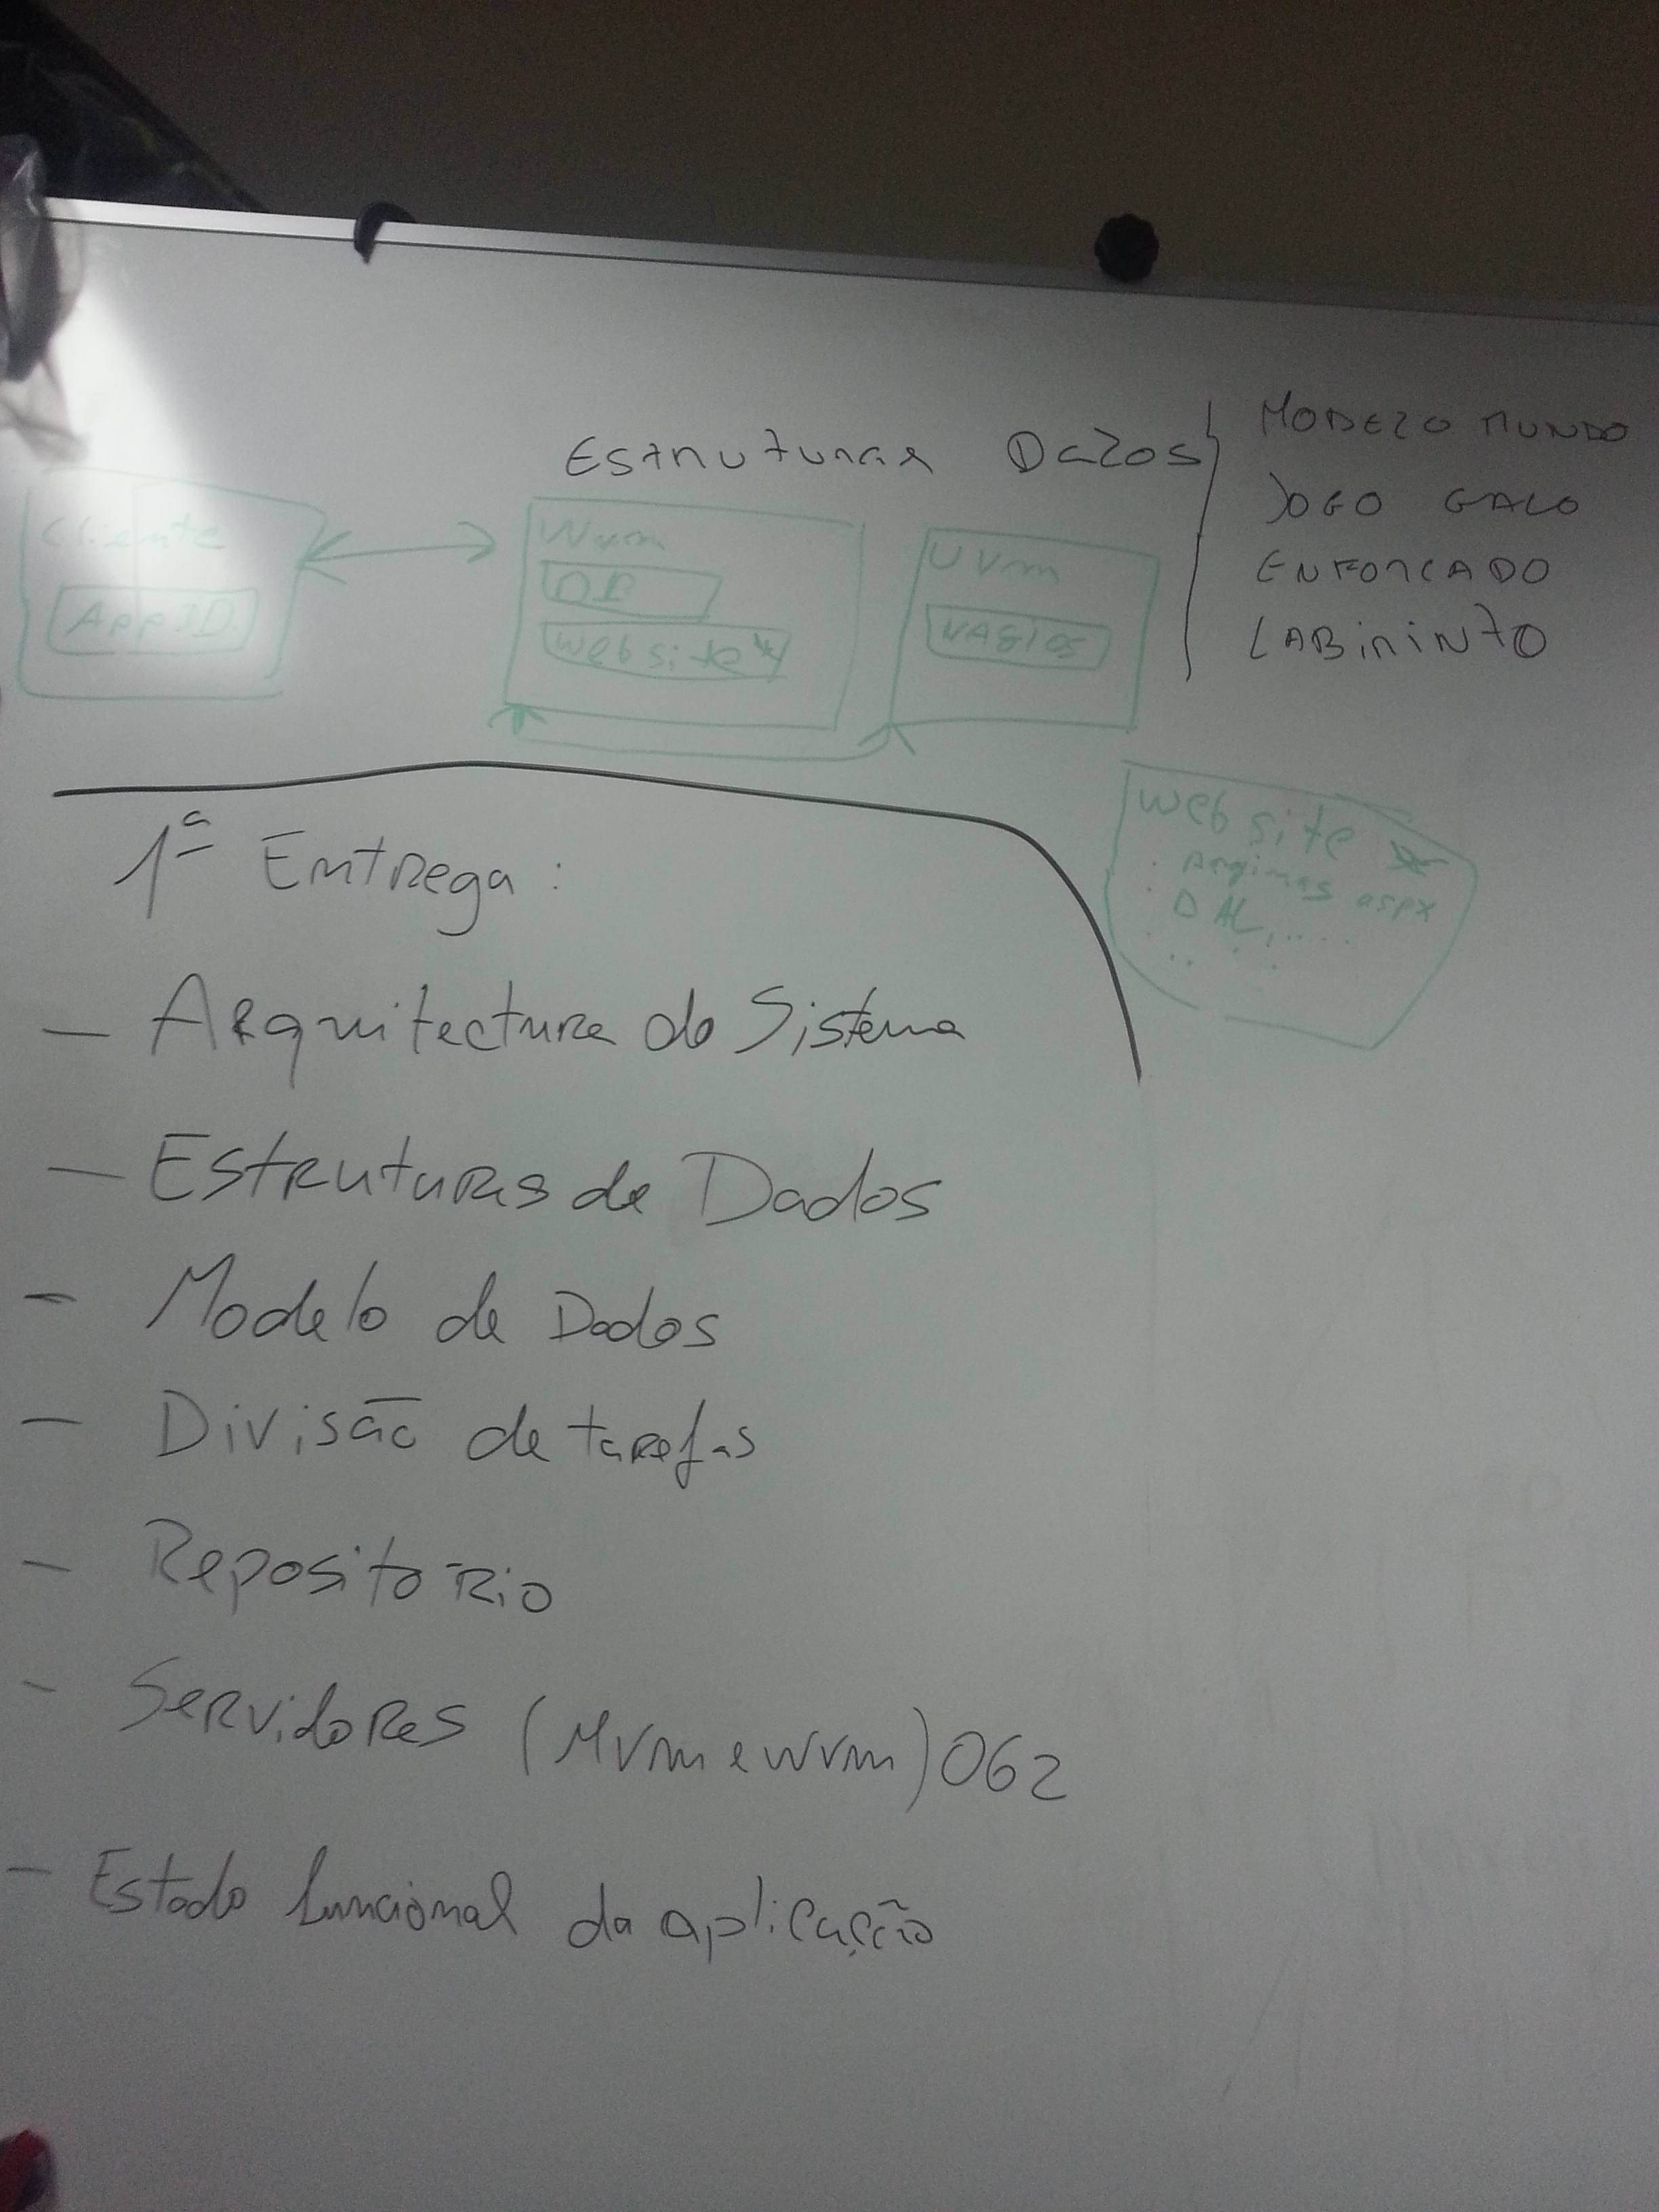 Estruturas Dados
MODELO MUNDO
JOGO GALO
ENFORCADO
LABiRiNTO
Cliente
App3D
Wvm
DB
Website*
UVm
NAGIOS
Web site *
. paginas aspx
. DAL, ....
1ª Entrega:
- Arquitectura do Sistema
- Estruturas de Dados
- Modelo de Dados
- Divisão de tarefas
- Repositório
- Servidores (Mvm e wvm) 062
- Estado funcional da aplicação